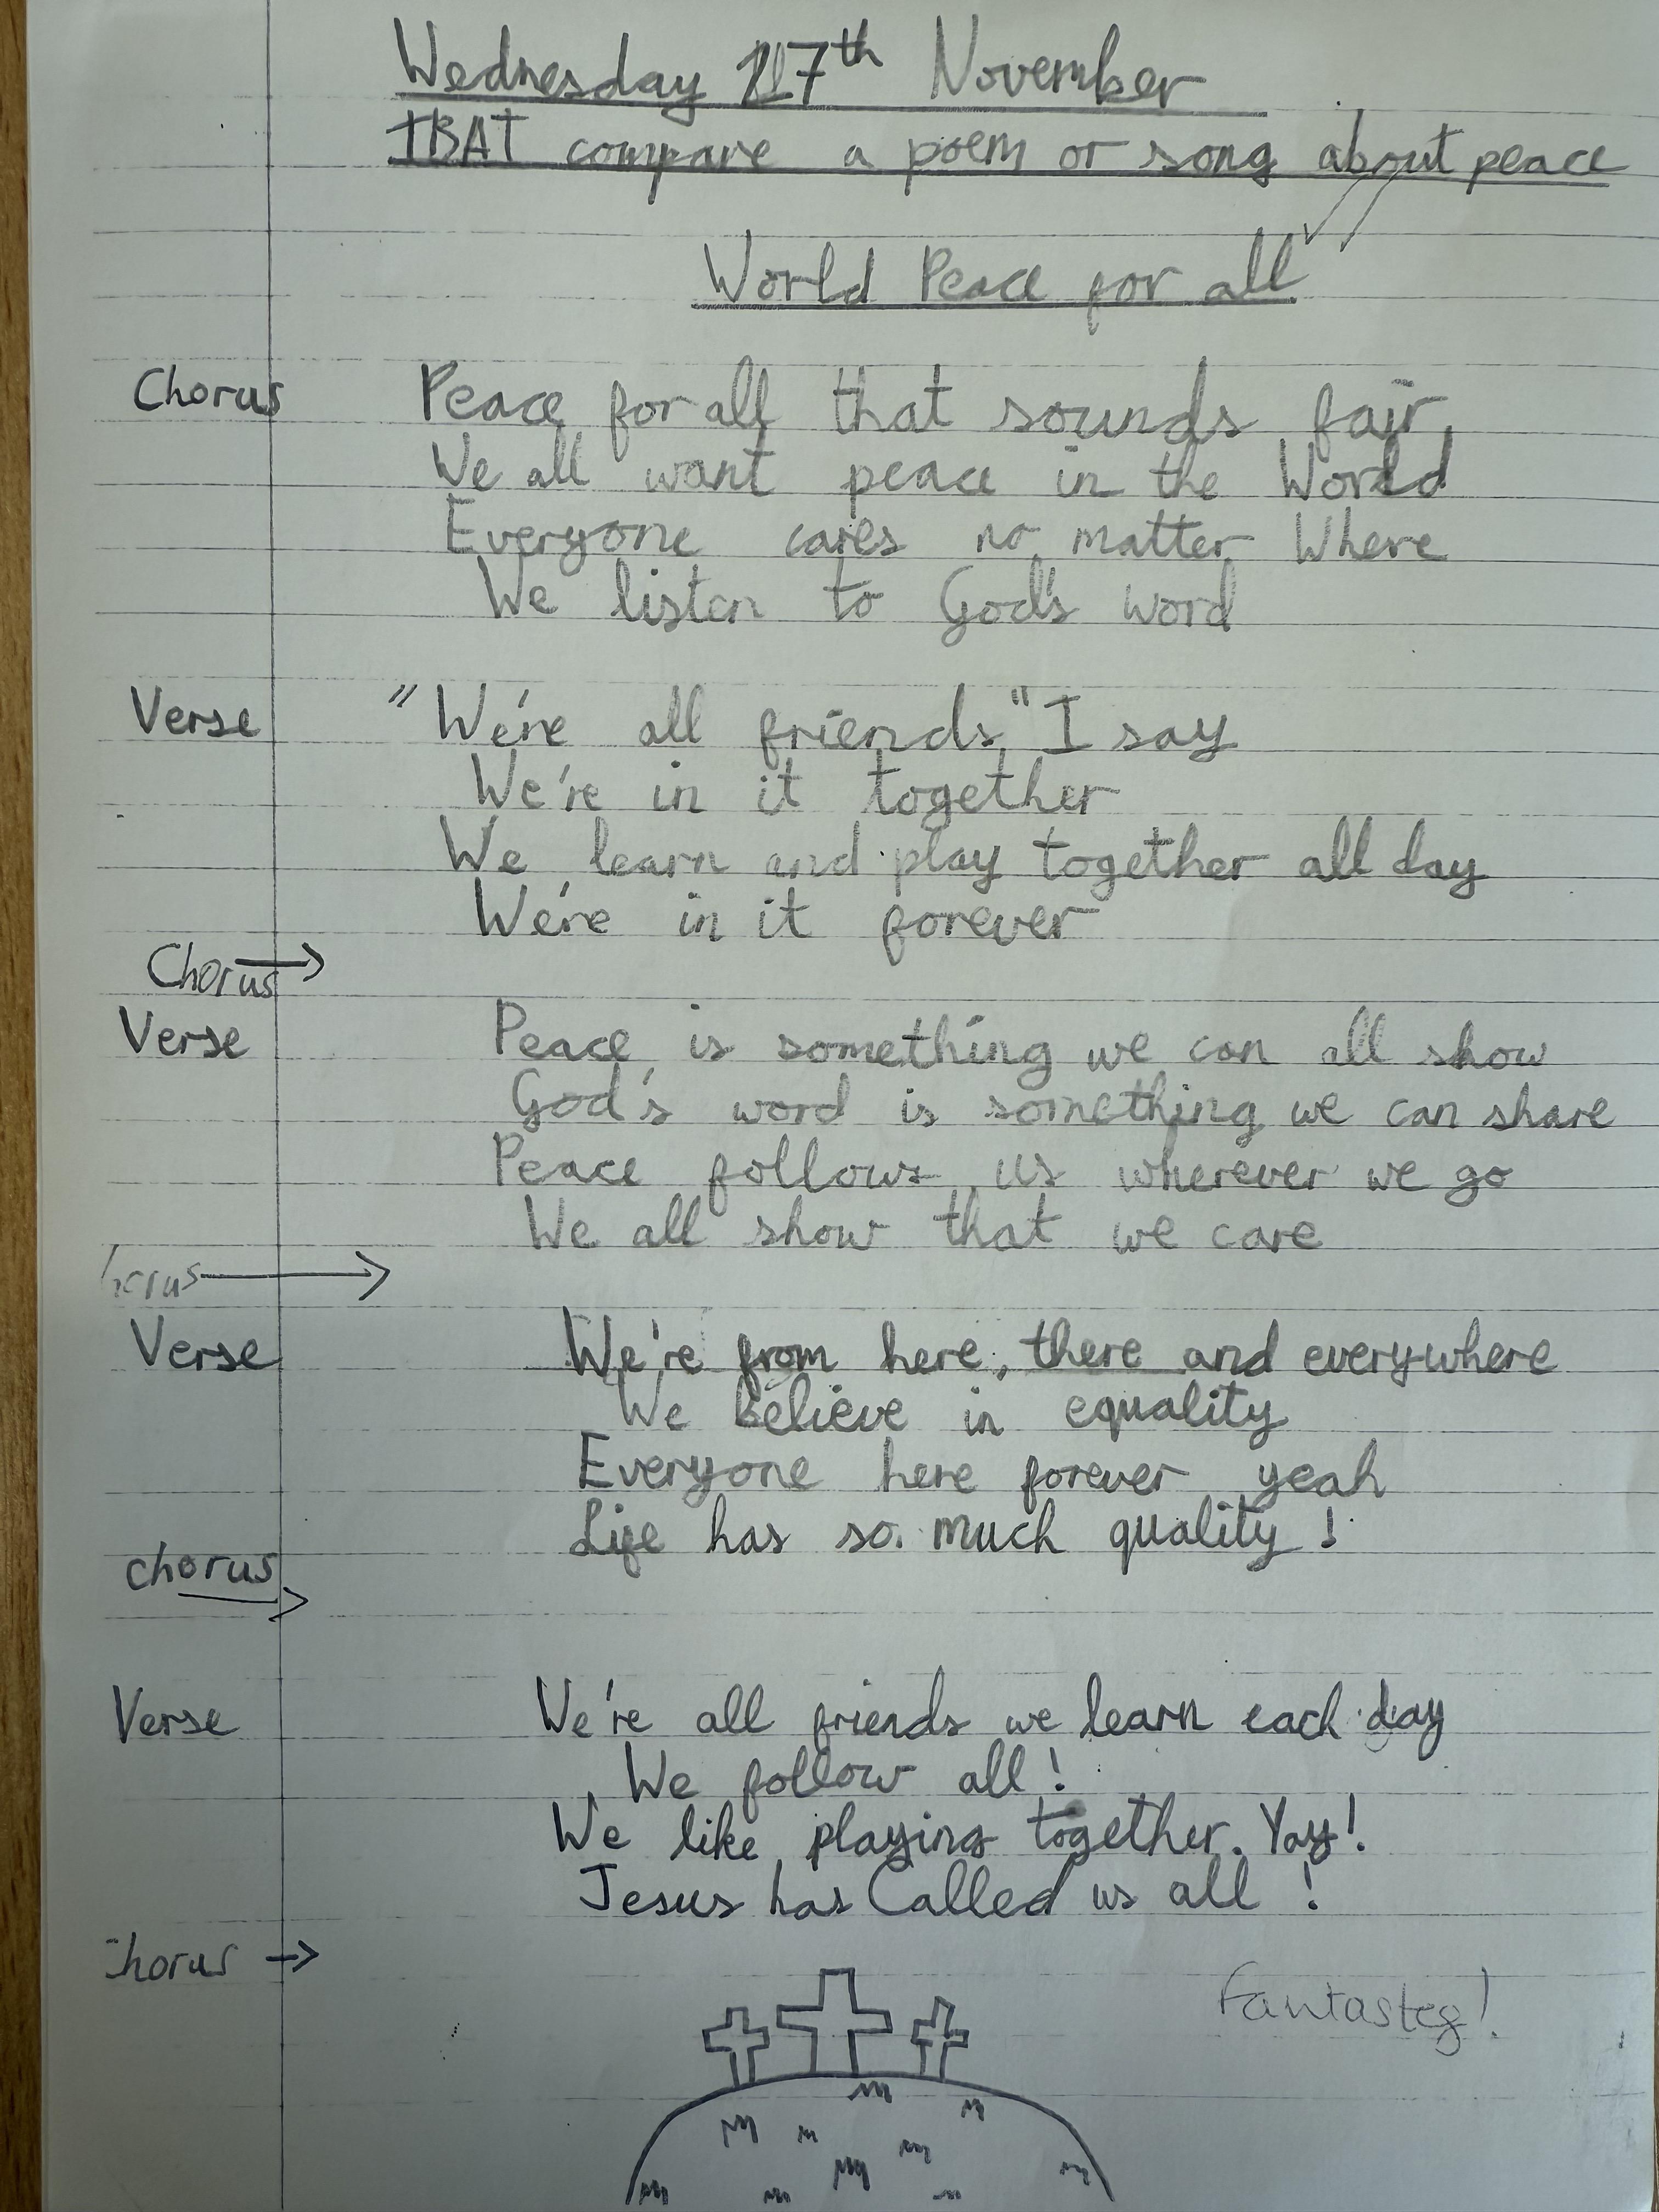 Wednesday 17th November
IBAT compare a poem or song about peace
World Peace for all
Chorus Peace for all that sounds fair,
We all want peace in the World
Everyone cares no matter Where
We listen to God's word
Verse "We're all friends," I say
We're in it together
We learn and play together all day
We're in it forever
Chorus →
Verse Peace is something we can all show
God's word is something we can share
Peace follows us wherever we go
We all show that we care
horus →
Verse We're from here, there and everywhere
We Believe in equality
Everyone here forever yeah
Life has so much quality!
chorus →
Verse We're all friends we learn each day
We follow all!
We like playing together. Yay!
Jesus has Called us all!
Chorus →
Fantasteg!